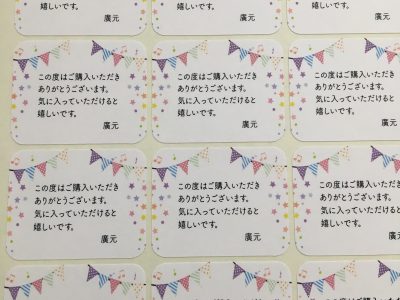 嬉しいです。
廣元
嬉しいです。
廣元
嬉しいです。
この度はご購入いただき
ありがとうございます。
気に入っていただけると
嬉しいです。
廣元
この度はご購入いただき
ありがとうございます。
気に入っていただけると
嬉しいです。
廣元
この度はご購入
ありがとうござ
気に入っていた
嬉しいです。
この度はご購入いただき
ありがとうございます。
気に入っていただけると
嬉しいです。
廣元
この度はご購入いただき
ありがとうございます。
気に入っていただけると
嬉しいです。
廣元
この度はご購入
ありがとうござ
気に入っていた
嬉しいです。